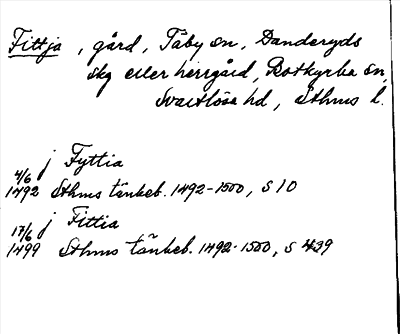 Fittja, gård, Täby sn, Danderyds
skg eller herrgård, Botkyrka sn,
Svartlösa hd, Sthms l.
j Fyttia
4/6 1492 Sthms tänkeb. 1492-1500, s 10
j Fittia
17/6 1499 Sthms tänkeb. 1492-1500, s 439